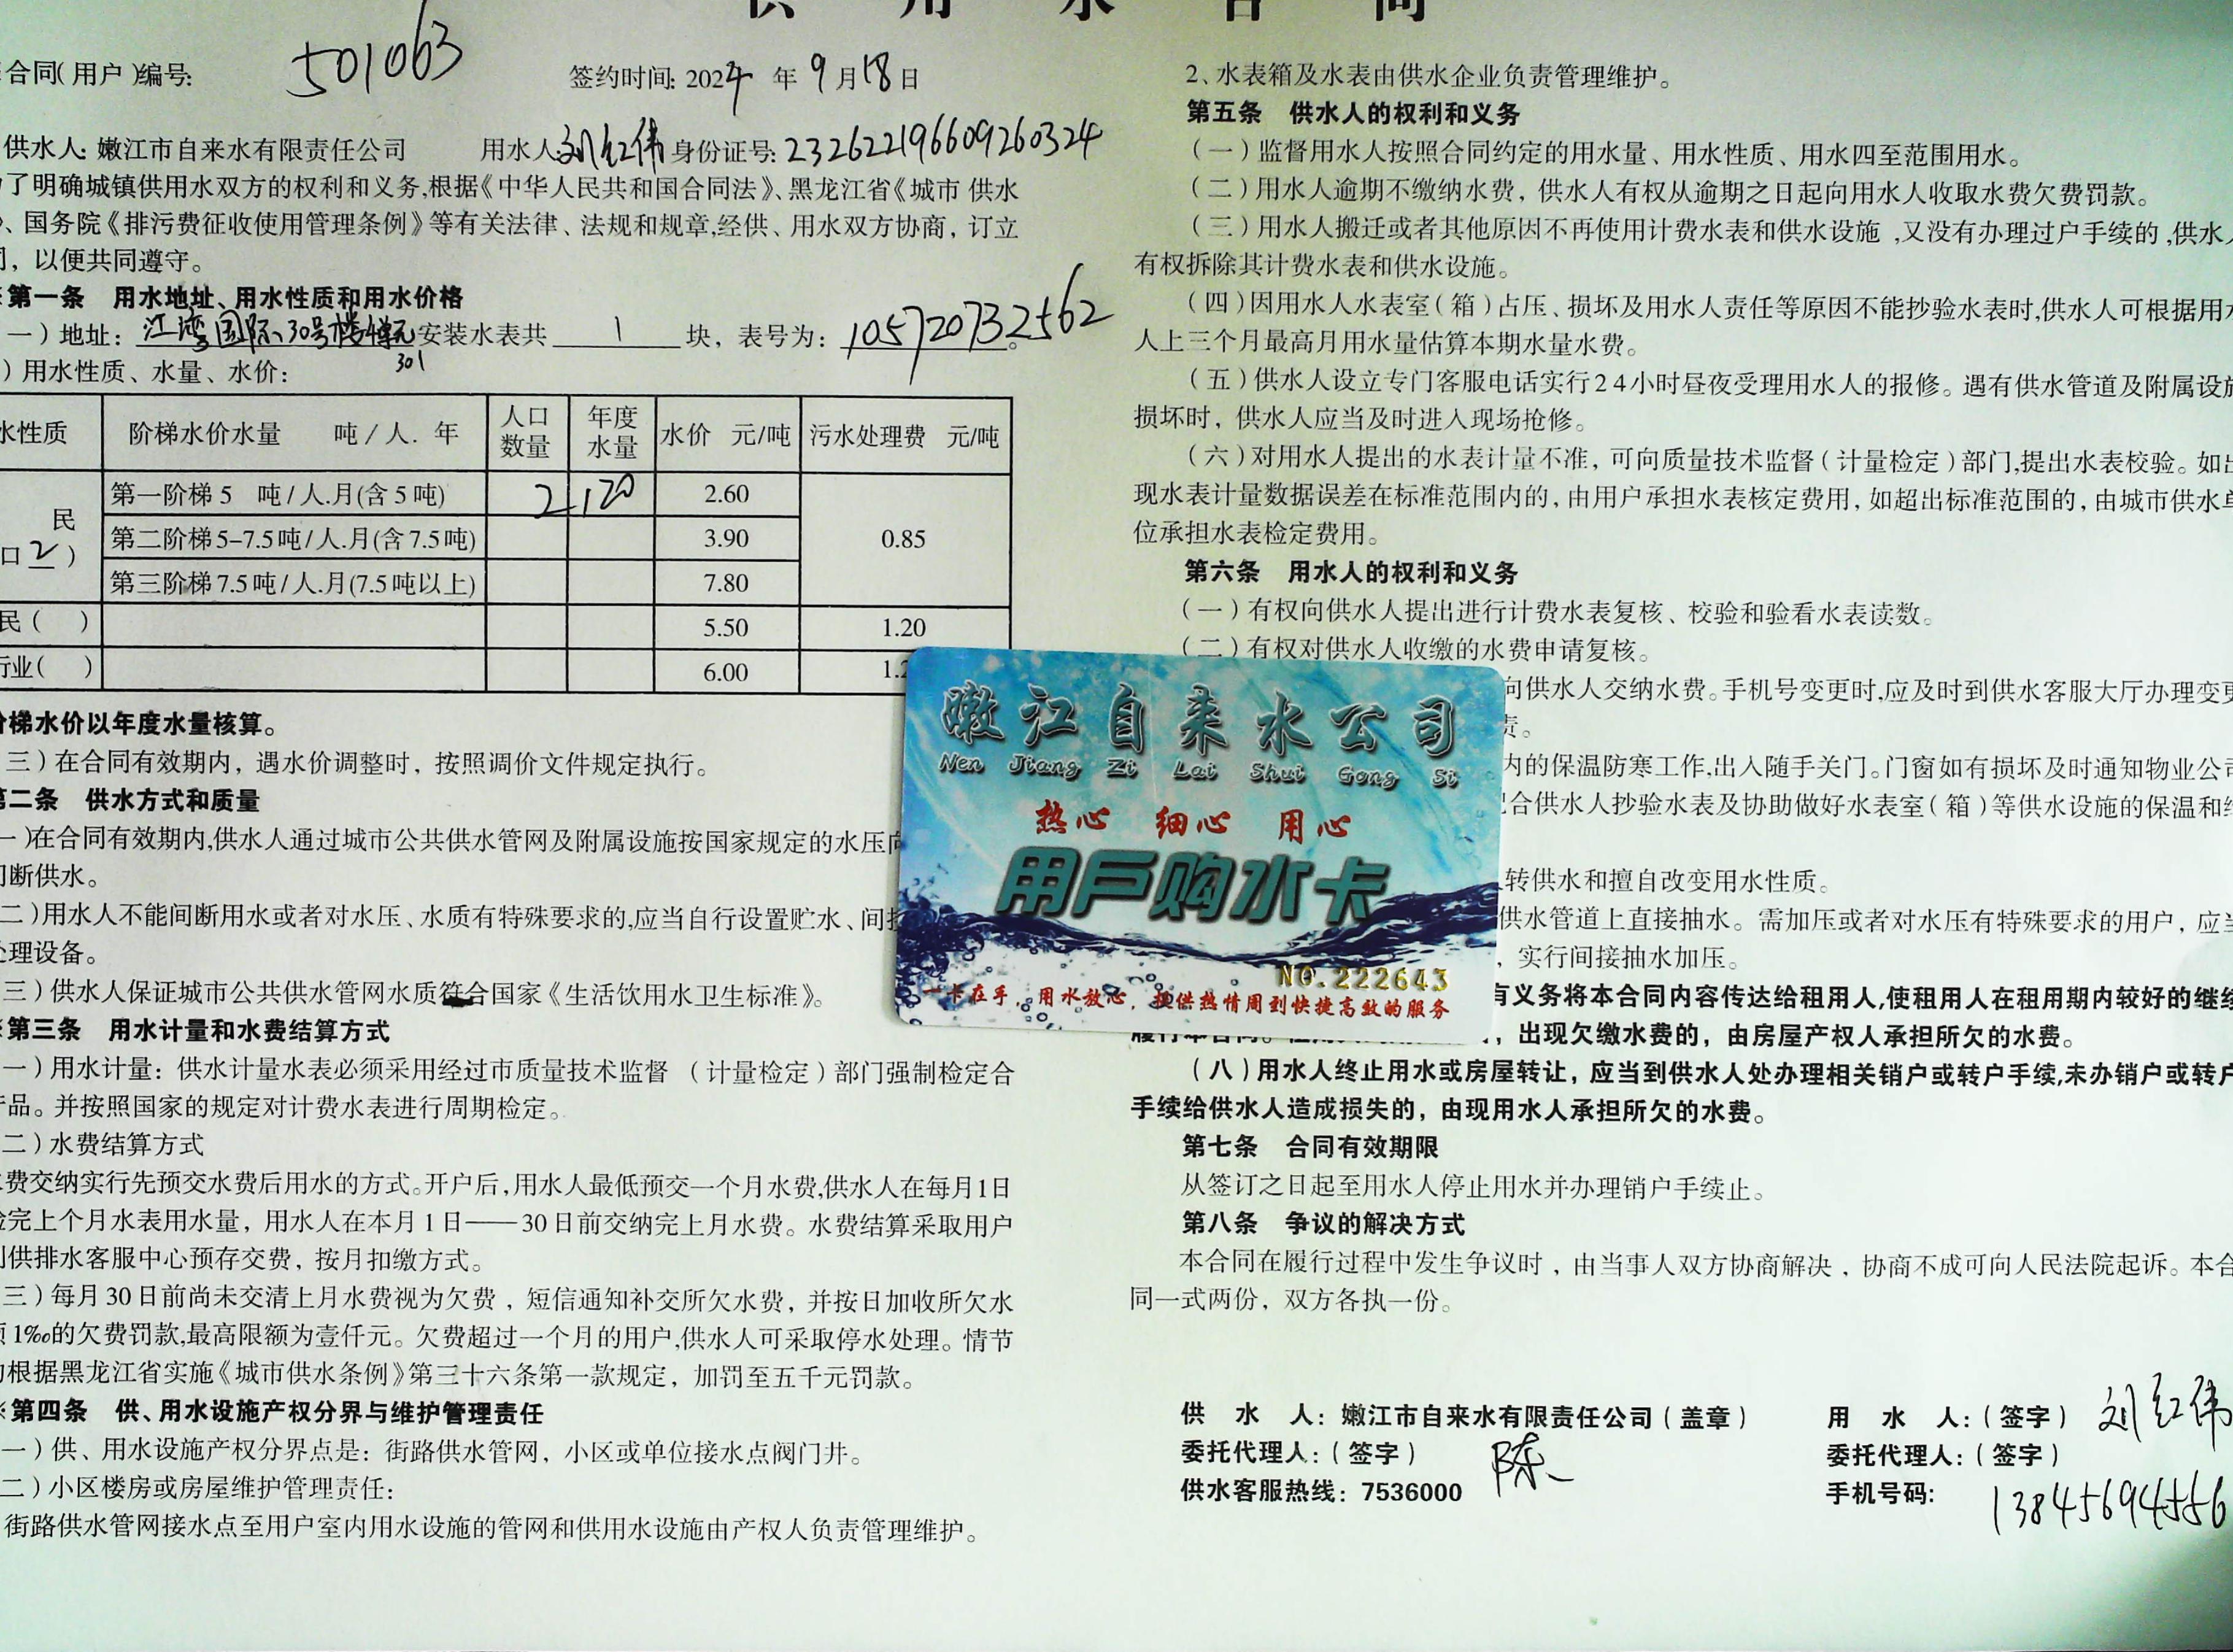 供用水合同
合同(用户)编号: 501063 签约时间: 2024年9月18日
供水人: 嫩江市自来水有限责任公司 用水人: 刘红伟 身份证号: 232622196609260324
了明确城镇供用水双方的权利和义务,根据《中华人民共和国合同法》、黑龙江省《城市 供水
、国务院《排污费征收使用管理条例》等有关法律、法规和规章,经供、用水双方协商，订立
，以便共同遵守。
第一条 用水地址、用水性质和用水价格
一）地址：江湾国际30号楼4单元301 安装水表共 1 块，表号为：105720732562。
）用水性质、水量、水价：
水性质 阶梯水价水量 吨/人.年 人口数量 年度水量 水价 元/吨 污水处理费 元/吨
民 第一阶梯5 吨/人.月(含5吨) 2 120 2.60 0.85
口2） 第二阶梯5-7.5吨/人.月(含7.5吨) 3.90
第三阶梯7.5吨/人.月(7.5吨以上) 7.80
民（ ） 5.50 1.20
行业( ） 6.00 1.2
阶梯水价以年度水量核算。
三）在合同有效期内，遇水价调整时，按照调价文件规定执行。
第二条 供水方式和质量
一)在合同有效期内,供水人通过城市公共供水管网及附属设施按国家规定的水压向
间断供水。
二)用水人不能间断用水或者对水压、水质有特殊要求的,应当自行设置贮水、间接
处理设备。
三)供水人保证城市公共供水管网水质符合国家《生活饮用水卫生标准》。
第三条 用水计量和水费结算方式
一)用水计量：供水计量水表必须采用经过市质量技术监督（计量检定)部门强制检定合
产品。并按照国家的规定对计费水表进行周期检定。
二)水费结算方式
费交纳实行先预交水费后用水的方式。开户后,用水人最低预交一个月水费,供水人在每月1日
完上个月水表用水量，用水人在本月1日——30日前交纳完上月水费。水费结算采取用户
到供排水客服中心预存交费，按月扣缴方式。
三)每月30日前尚未交清上月水费视为欠费，短信通知补交所欠水费，并按日加收所欠水
1‰的欠费罚款,最高限额为壹仟元。欠费超过一个月的用户,供水人可采取停水处理。情节
根据黑龙江省实施《城市供水条例》第三十六条第一款规定，加罚至五千元罚款。
※第四条 供、用水设施产权分界与维护管理责任
一)供、用水设施产权分界点是：街路供水管网，小区或单位接水点阀门井。
二)小区楼房或房屋维护管理责任：
街路供水管网接水点至用户室内用水设施的管网和供用水设施由产权人负责管理维护。
2、水表箱及水表由供水企业负责管理维护。
第五条 供水人的权利和义务
（一)监督用水人按照合同约定的用水量、用水性质、用水四至范围用水。
（二)用水人逾期不缴纳水费，供水人有权从逾期之日起向用水人收取水费欠费罚款。
（三)用水人搬迁或者其他原因不再使用计费水表和供水设施,又没有办理过户手续的,供水人
有权拆除其计费水表和供水设施。
（四)因用水人水表室(箱)占压、损坏及用水人责任等原因不能抄验水表时,供水人可根据用水
人上三个月最高月用水量估算本期水量水费。
（五)供水人设立专门客服电话实行24小时昼夜受理用水人的报修。遇有供水管道及附属设施
损坏时，供水人应当及时进入现场抢修。
（六)对用水人提出的水表计量不准，可向质量技术监督(计量检定)部门,提出水表校验。如出
现水表计量数据误差在标准范围内的，由用户承担水表核定费用，如超出标准范围的，由城市供水单
位承担水表检定费用。
第六条 用水人的权利和义务
（一)有权向供水人提出进行计费水表复核、校验和验看水表读数。
（二)有权对供水人收缴的水费申请复核。
向供水人交纳水费。手机号变更时,应及时到供水客服大厅办理变更
责。
内的保温防寒工作,出入随手关门。门窗如有损坏及时通知物业公司
配合供水人抄验水表及协助做好水表室(箱)等供水设施的保温和
转供水和擅自改变用水性质。
供水管道上直接抽水。需加压或者对水压有特殊要求的用户，应当
，实行间接抽水加压。
有义务将本合同内容传达给租用人,使租用人在租用期内较好的继续
，出现欠缴水费的，由房屋产权人承担所欠的水费。
（八)用水人终止用水或房屋转让，应当到供水人处办理相关销户或转户手续,未办销户或转户
手续给供水人造成损失的，由现用水人承担所欠的水费。
第七条 合同有效期限
从签订之日起至用水人停止用水并办理销户手续止。
第八条 争议的解决方式
本合同在履行过程中发生争议时，由当事人双方协商解决，协商不成可向人民法院起诉。本合
同一式两份，双方各执一份。
供 水 人：嫩江市自来水有限责任公司(盖章) 用 水 人:(签字) 刘红伟
委托代理人:(签字) 陈 委托代理人:(签字)
供水客服热线：7536000 手机号码: 13845694556
嫩江自来水公司
Nen Jiang Zi Lai Shui Gong Si
热心 细心 用心
用户购水卡
NO.222643
一卡在手，用水放心，提供热情周到快捷高效的服务